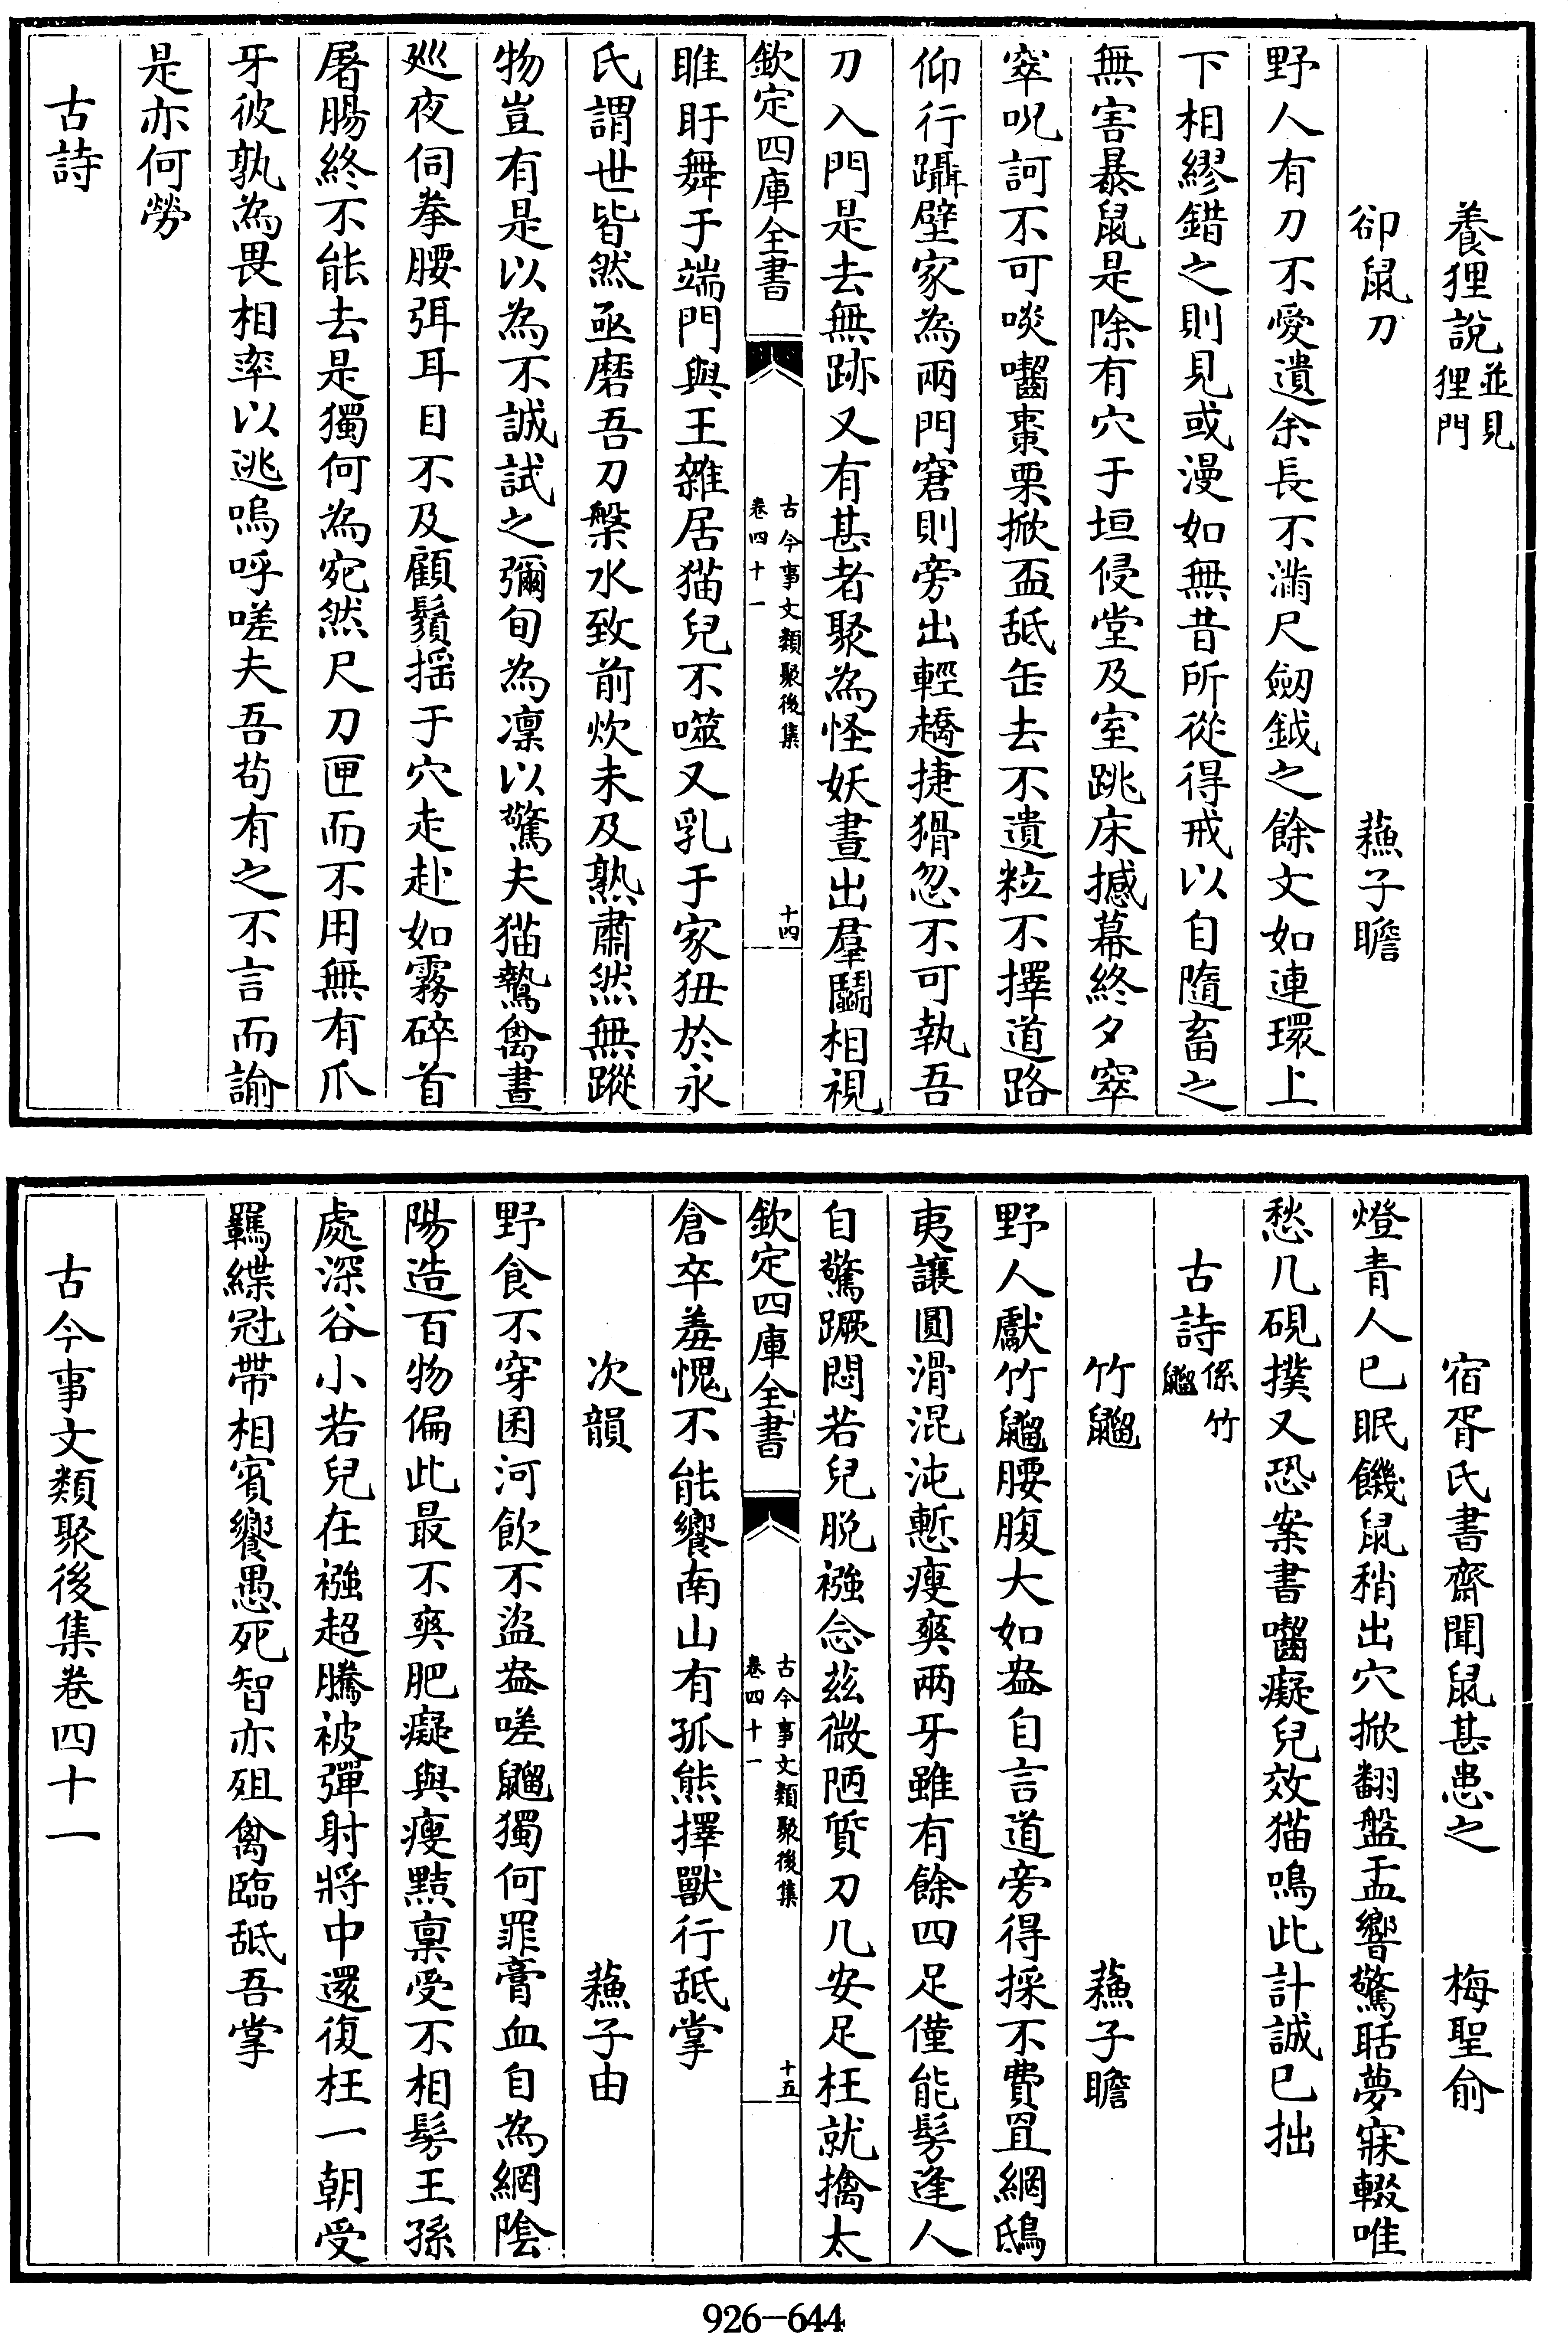 養狸說並見狸門
卻鼠刀 蘓子瞻
野人有刀不愛遺余長不滿尺劒鉞之餘文如連環上
下相繆錯之則見或漫如無昔所從得戒以自隨畜之
無害暴鼠是除有穴于垣侵堂及室跳床撼幕終夕窣
窣叱訶不可啖囓棗栗掀盃舐缶去不遺粒不擇道路
仰行躡壁家為兩門窘則旁出輕趫捷猾忽不可執吾
刀入門是去無跡又有甚者聚為怪妖晝出羣鬭相視
欽定四庫全書
古今事文類聚後集
卷四十一
十四
睢盱舞于端門與王雜居猫兒不噬又乳于家狃於永
氏謂世皆然亟磨吾刀槃水致前炊未及熟肅然無蹤
物豈有是以為不誠試之彌旬為凜以驚夫猫鷙禽晝
廵夜伺拳腰弭耳目不及顧鬚揺于穴走赴如霧碎首
屠腸終不能去是獨何為宛然尺刀匣而不用無有爪
牙彼孰為畏相率以逃嗚呼嗟夫吾苟有之不言而諭
是亦何勞
古詩
宿胥氏書齋聞鼠甚患之 梅聖俞
燈青人已眠饑鼠稍出穴掀翻盤盂響驚聒夢寐輟唯
愁几硯撲又恐案書囓癡兒效猫鳴此計誠已拙
古詩係竹䶉
竹䶉 蘓子瞻
野人獻竹䶉腰腹大如盎自言道旁得採不費罝網鴟
夷讓圓滑混沌慙瘦爽兩牙雖有餘四足僅能髣逢人
自驚蹶悶若兒脫襁念茲微陋質刀几安足枉就擒太
欽定四庫全書
古今事文類聚後集
卷四十一
十五
倉卒羞愧不能饗南山有孤熊擇獸行舐掌
次韻 蘓子由
野食不穿囷河飲不盜盎嗟䶉獨何罪膏血自為網陰
陽造百物偏此最不爽肥癡與瘦黠稟受不相髣王孫
處深谷小若兒在襁超騰被彈射將中還復枉一朝受
羈緤冠帶相賓饗愚死智亦殂禽臨舐吾掌
古今事文類聚後集卷四十一
926-644